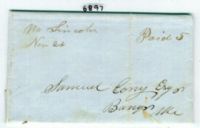 6897
No Lincoln
Nov 24
Paid 5
Samuel Cony Esqr
Bangor
Me